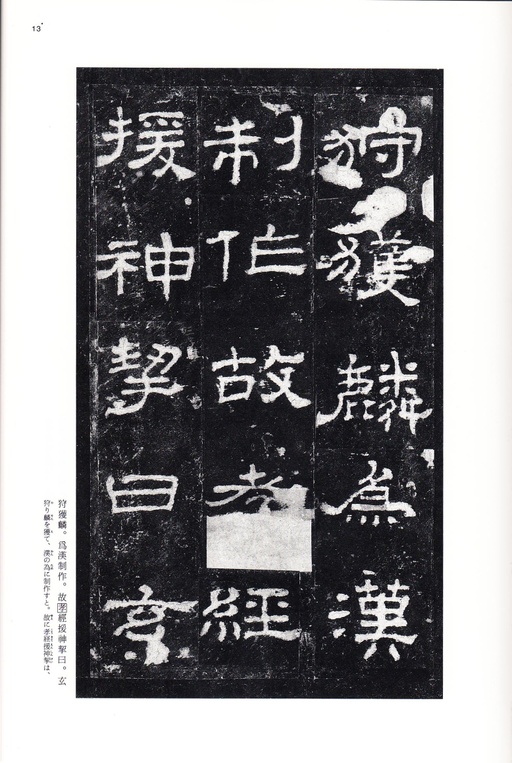 13
狩獲麟爲漢
制作故孝經
援神挈曰玄
狩獲麟。爲漢制作。故孝經援神挈曰。玄
狩り麟を獲て、漢の為に制作すと。故に孝經援神挈は、